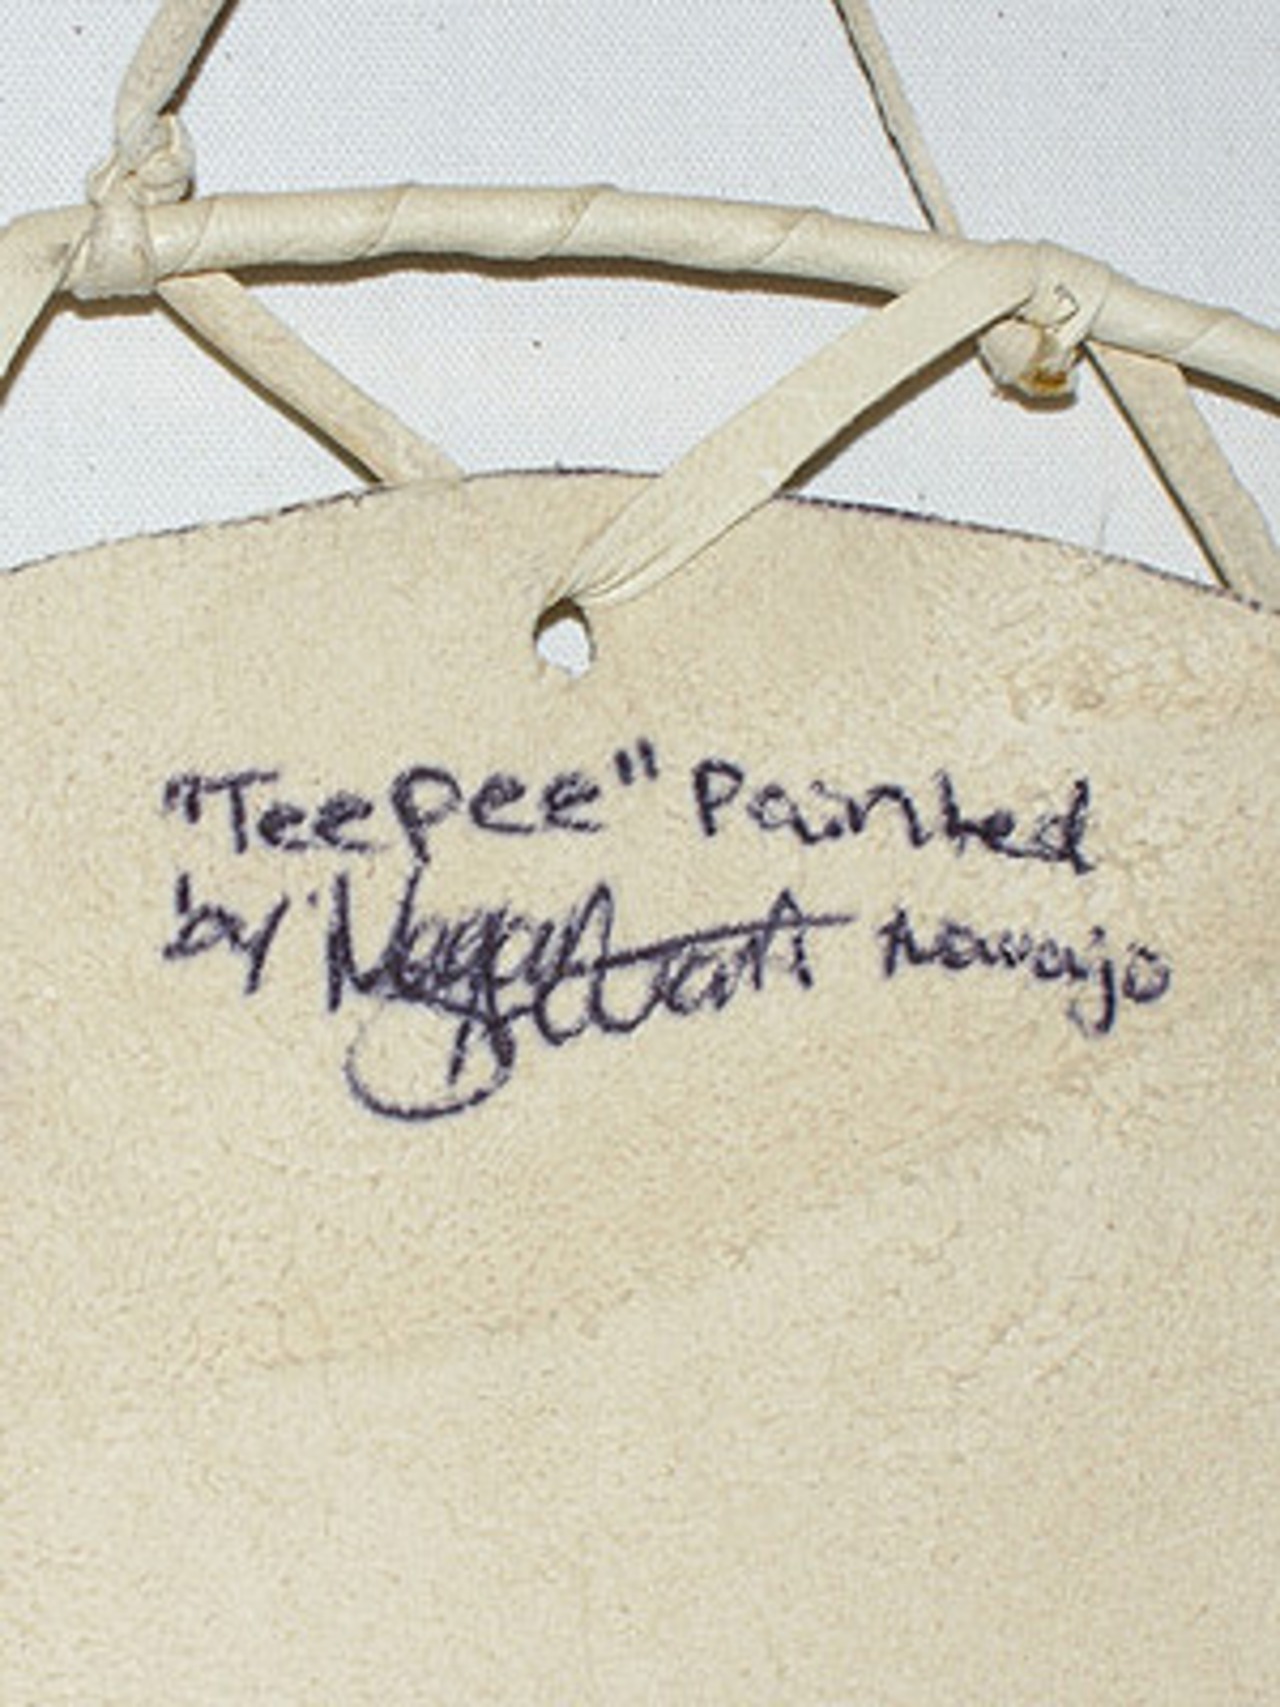 "Teepee" Painted
by Navajo